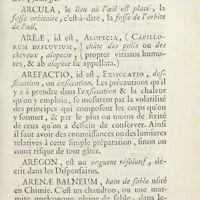 ARCULA, le lieu où l'œil est placé, la
fosse orbitaire, c'est-à-dire, la fosse de l'orbite
de l'œil.
AREÆ, id est, ALOPECIA, (CAPILLO-
RUM DEFLUVIUM,) chûte des poils ou des
cheveux, alopécie, (propter vitiatos humo-
res, & ab alopece sic appellata.)
AREFACTIO, id est, EXSICCATIO, des-
siccation, ou exsiccation. Les précautions qu'il
y a à prendre dans l'exsiccation & la chaleur
qu'on y emploie, se mesurent par la volatilité
des principes qui composent les corps qu'on
y soumet, & par le plus ou moins de fixité
de ceux qu'on a dessein de conserver. Ainsi
il faut avoir des connoissances ou des lumieres
relatives à cette simple préparation, sinon on
court risque de tout gâter.
AREGON, est un onguent résolutif, dé-
crit dans les Dispensaires.
ARENÆ BALNEUM, bain de sable usité
en Chimie. C'est un chaudron, ou une mar-